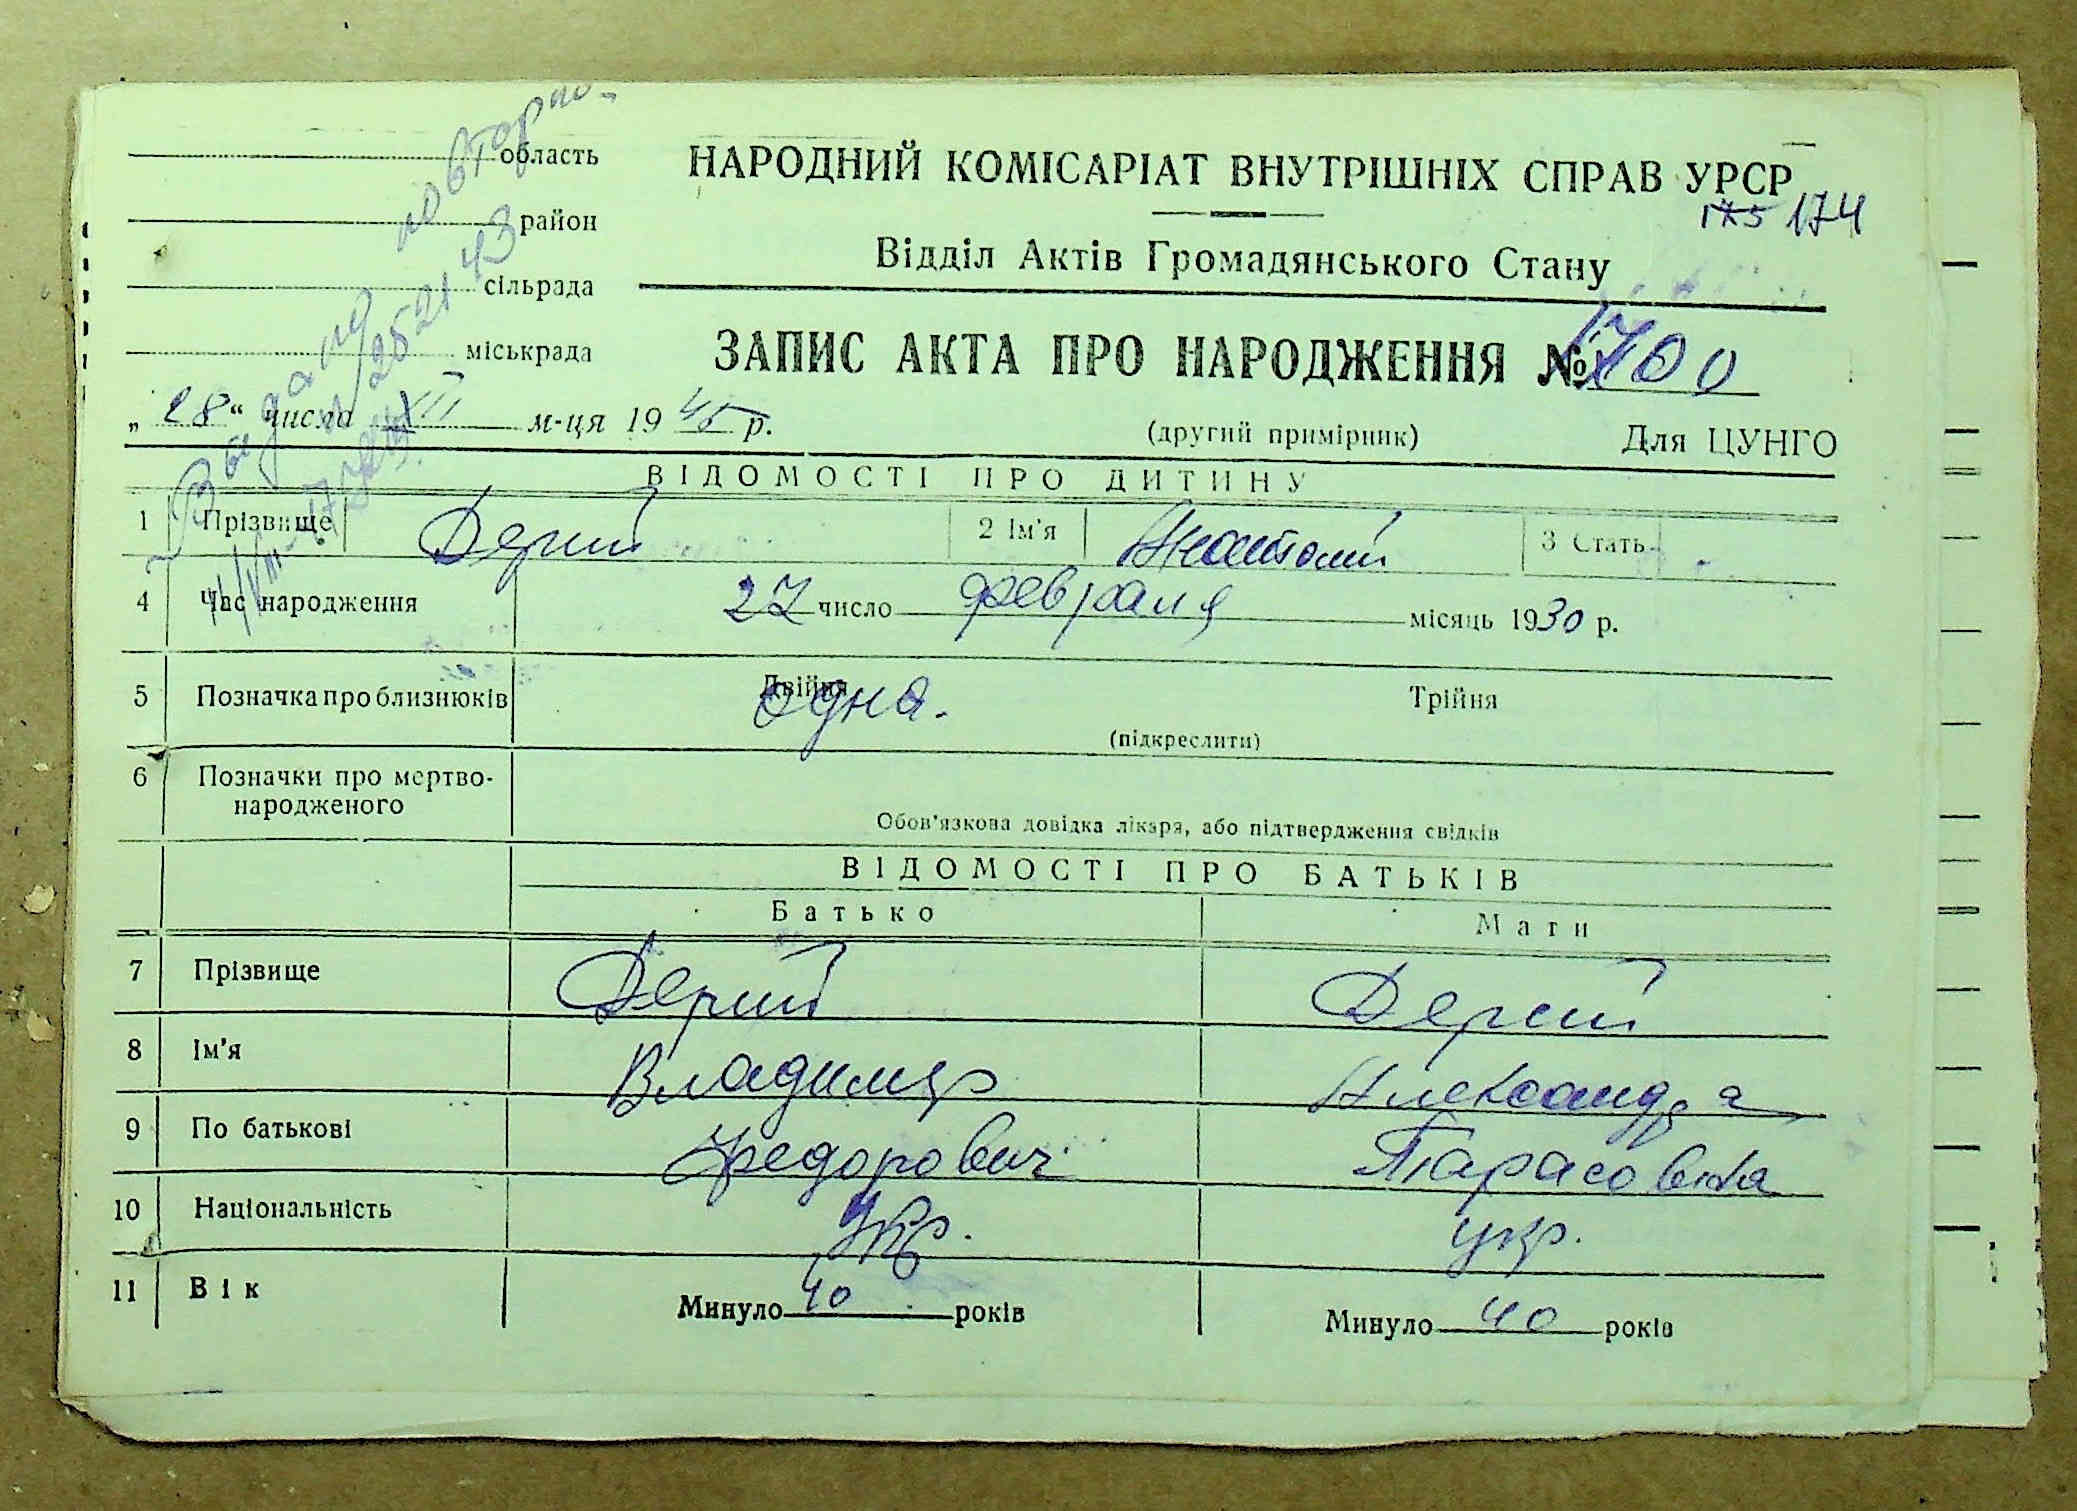 область
НАРОДНИЙ КОМІСАРІАТ ВНУТРІШНІХ СПРАВ УРСР
район
175 174
Відділ Актів Громадянського Стану
сільрада
міськрада
ЗАПИС АКТА ПРО НАРОДЖЕННЯ № 1700
„28“ числа XII м-ця 1945 р.
(другий примірник)
Для ЦУНГО
ВІДОМОСТІ ПРО ДИТИНУ
1 Прізвище Дерий 2 Ім'я Анатолий 3 Стать
4 Час народження 27 число февраля місяць 1930 р.
5 Позначка про близнюків Двійня одна. Трійня
(підкреслити)
6 Позначки про мертво-
народженого
Обов'язкова довідка лікаря, або підтвердження свідків
ВІДОМОСТІ ПРО БАТЬКІВ
Батько Мати
7 Прізвище Дерий Дерий
8 Ім'я Владимир Александра
9 По батькові Федорович Тарасовна
10 Національність Укр. укр.
11 Вік Минуло 40 років Минуло 40 років
Выдано повторно